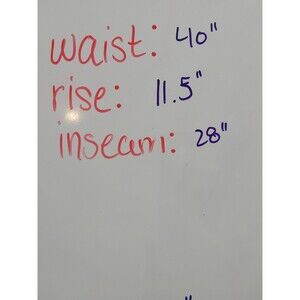 waist: 40"
rise: 11.5"
inseam: 28"